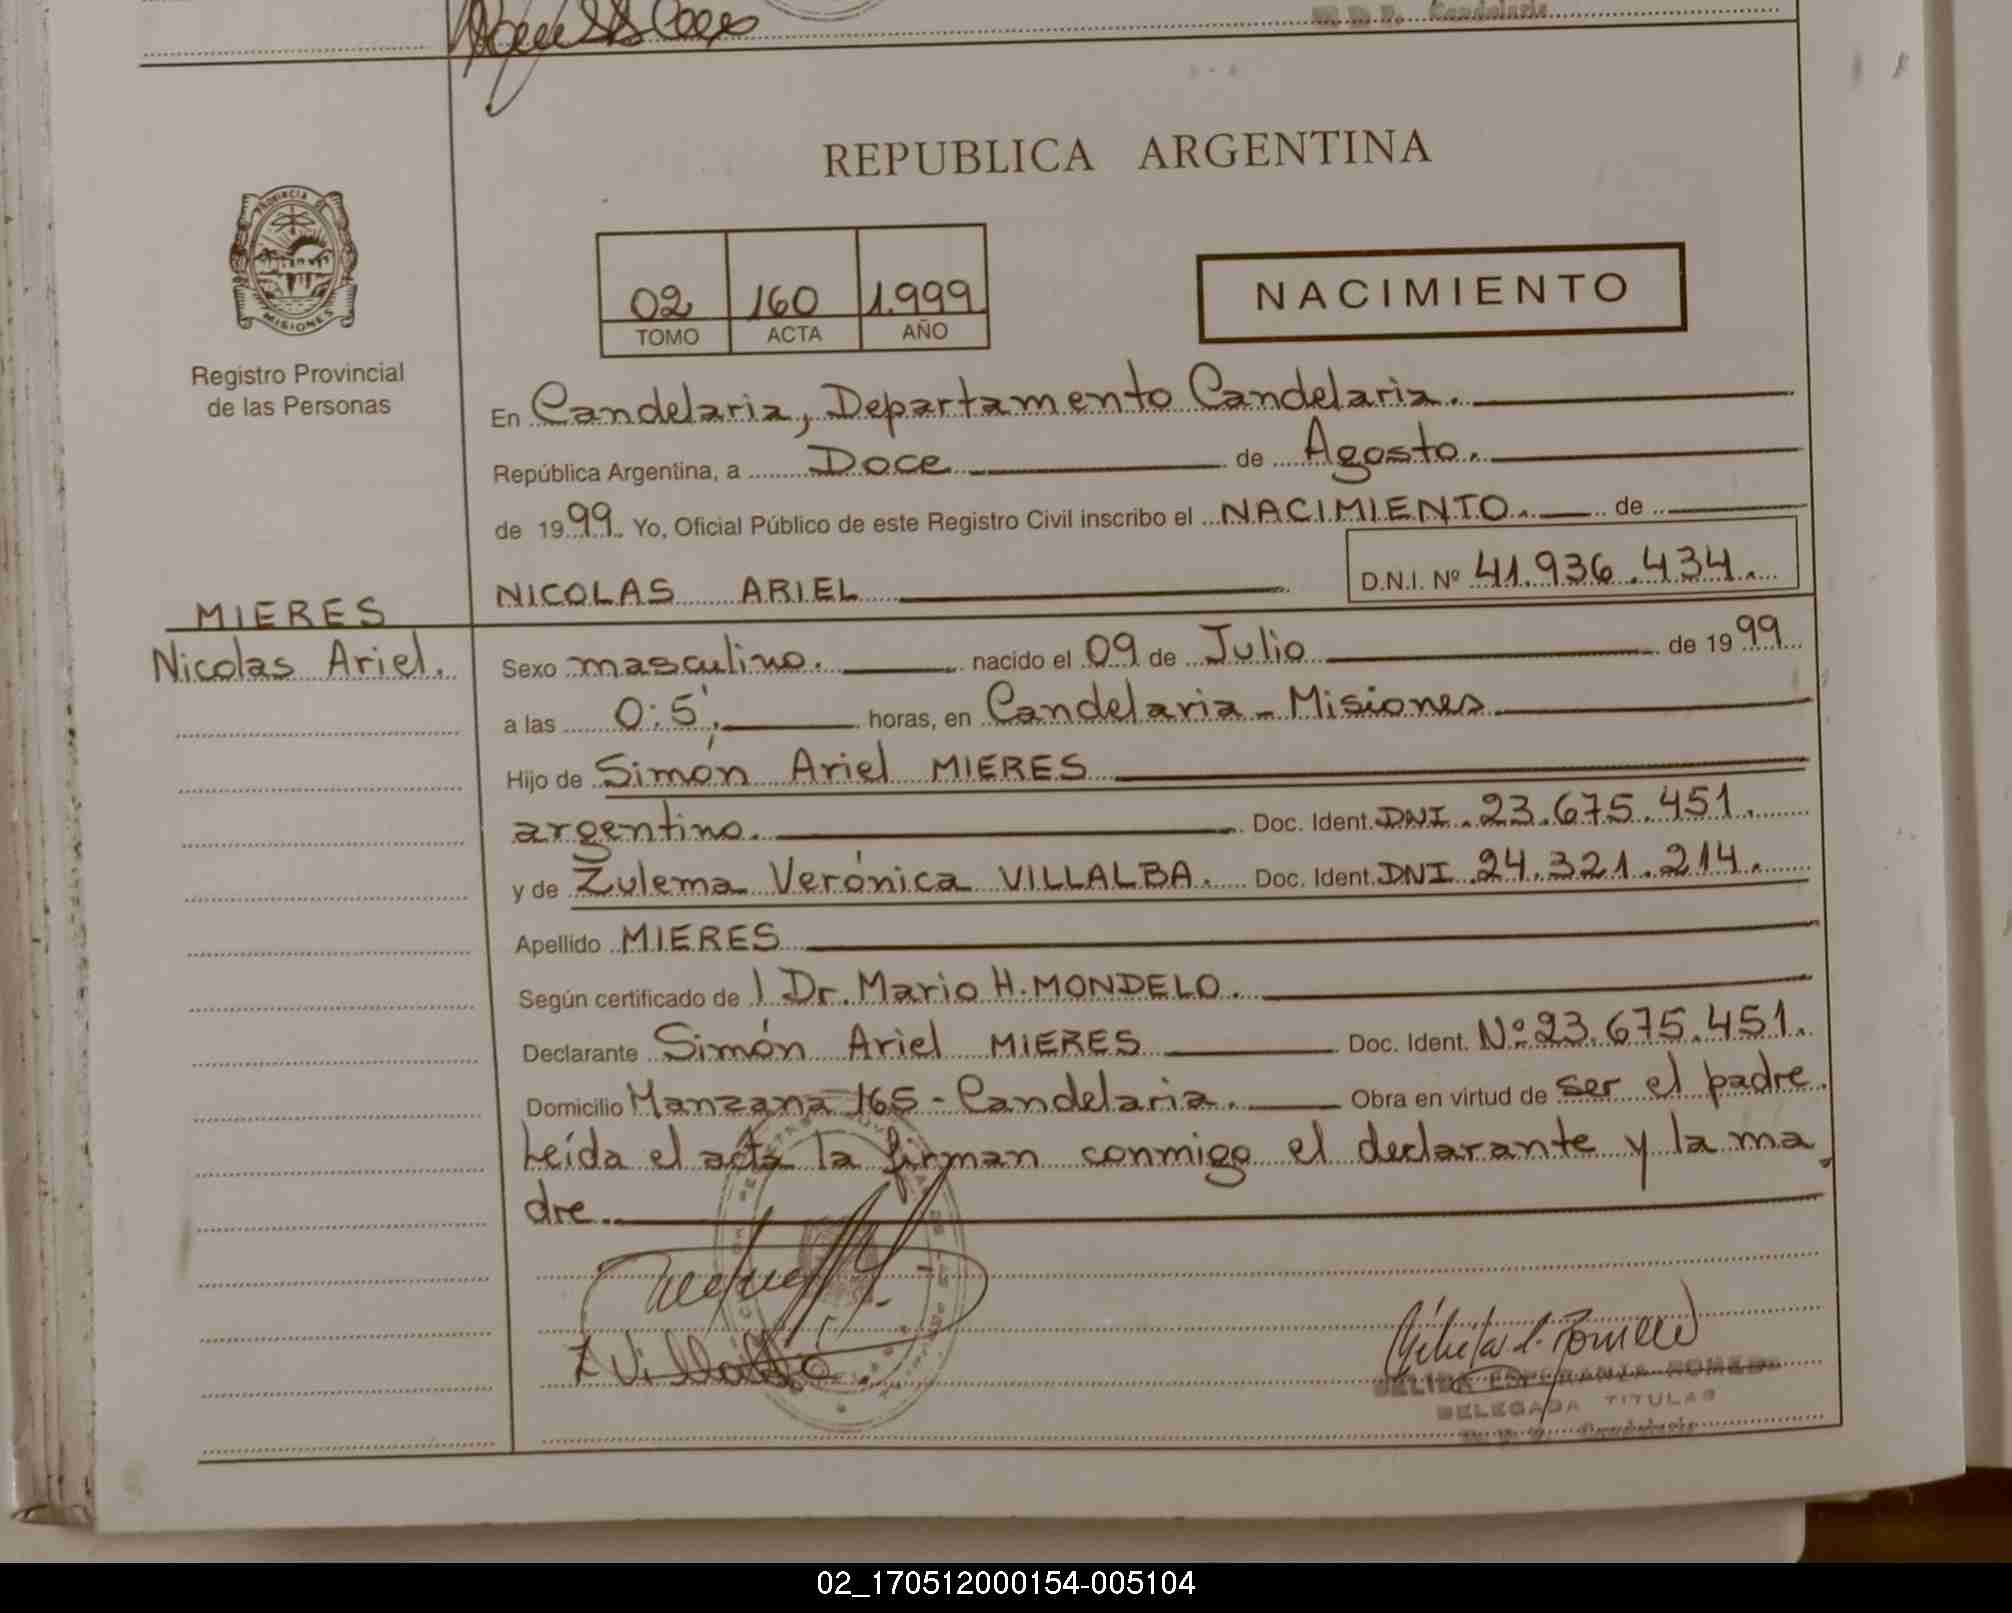 REPUBLICA ARGENTINA
PROVINCIA DE
MISIONES
Registro Provincial
de las Personas
02 160 1.999
TOMO ACTA AÑO
NACIMIENTO
En Candelaria, Departamento Candelaria.
República Argentina, a Doce de Agosto.
de 1999. Yo, Oficial Público de este Registro Civil inscribo el NACIMIENTO. de
NICOLAS ARIEL D.N.I. Nº 41.936.434.
MIERES
Nicolas Ariel.
Sexo masculino. nacido el 09 de Julio de 1999
a las 0:5'. horas, en Candelaria - Misiones
Hijo de Simón Ariel MIERES
argentino. Doc. Ident. DNI. 23.675.451.
y de Zulema Verónica VILLALBA. Doc. Ident. DNI. 24.321.214.
Apellido MIERES
Según certificado de l Dr. Mario H. MONDELO.
Declarante Simón Ariel MIERES Doc. Ident. Nº 23.675.451.
Domicilio Manzana 165 - Candelaria. Obra en virtud de ser el padre.
Leída el acta la firman conmigo el declarante y la ma
dre.
Z Villalba
ESPERANZA ROMERO
DELEGADA TITULAR
Candelaria
02_170512000154-005104